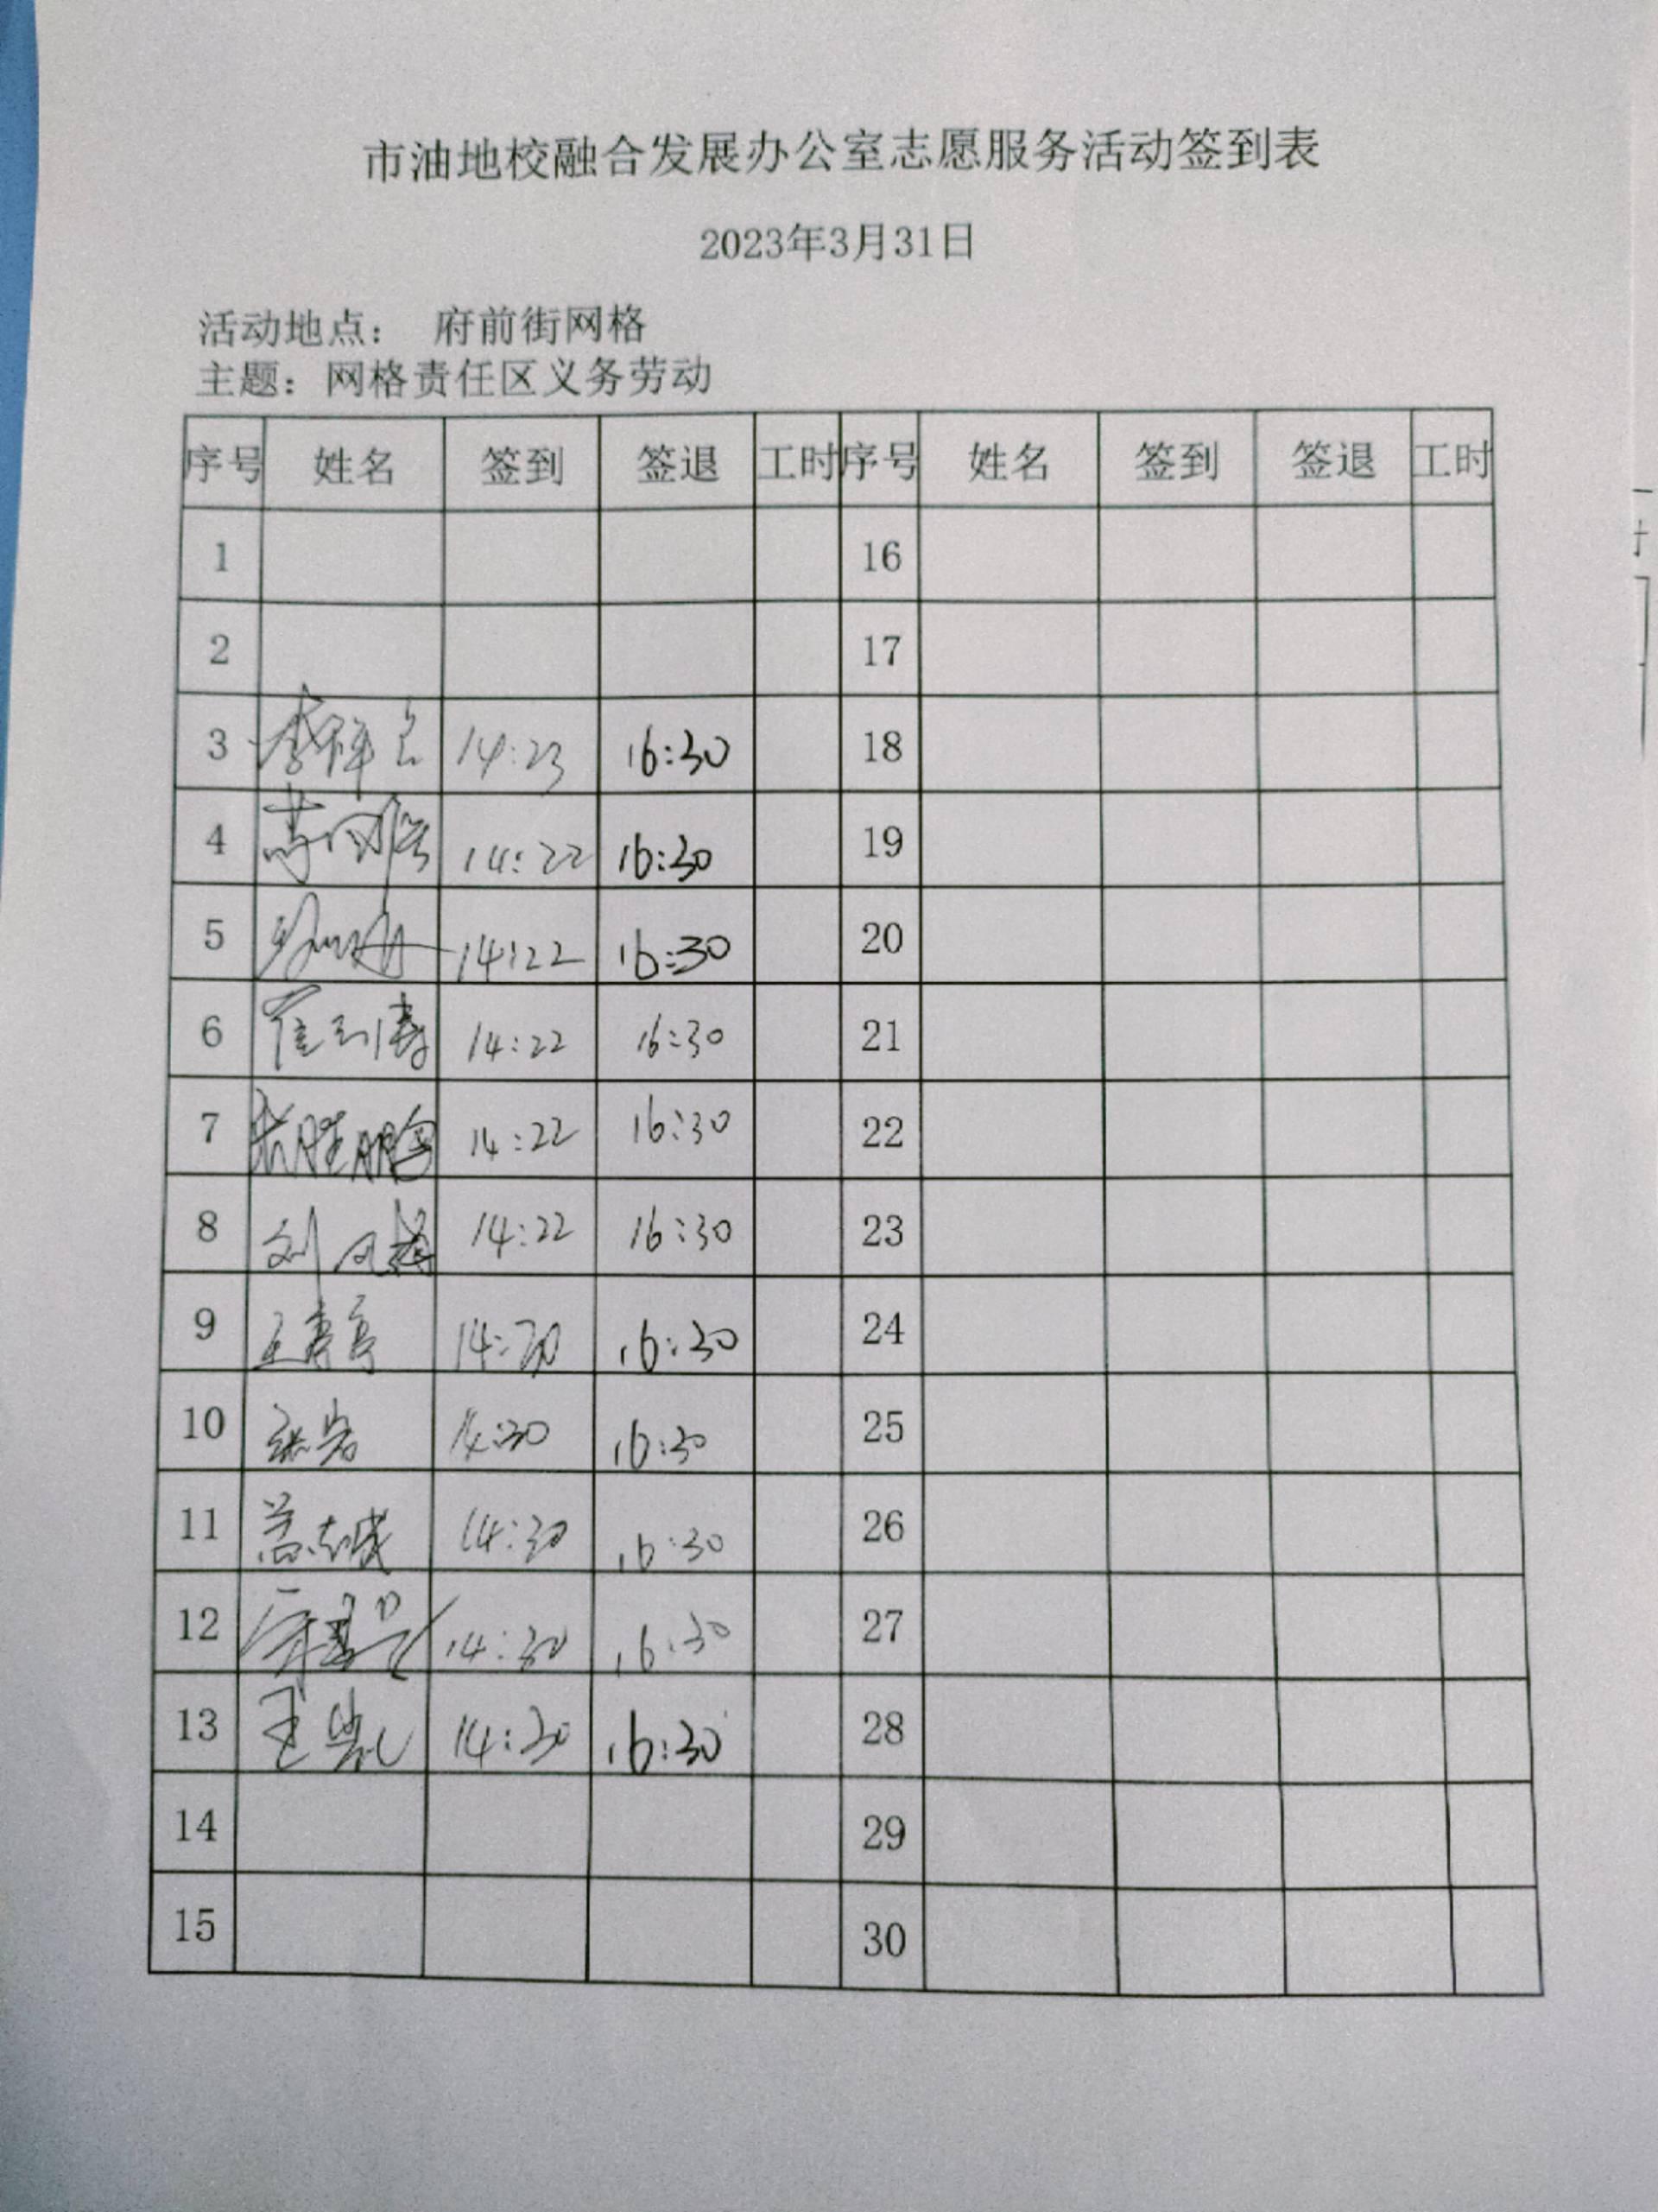 市油地校融合发展办公室志愿服务活动签到表
2023年3月31日
活动地点： 府前街网格
主题：网格责任区义务劳动
序号 姓名 签到 签退 工时 序号 姓名 签到 签退 工时
1 16
2 17
3 14:23 16:30 18
4 14:22 16:30 19
5 14:22 16:30 20
6 14:22 16:30 21
7 张胜鹏 14:22 16:30 22
8 刘 14:22 16:30 23
9 王 14:30 16:30 24
10 张岩 14:30 16:30 25
11 14:30 16:30 26
12 14:30 16:30 27
13 王凯 14:30 16:30 28
14 29
15 30